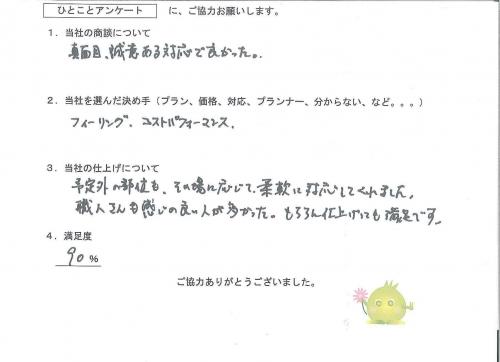 ひとことアンケート に、ご協力お願いします。
1．当社の商談について
真面目、誠意ある対応で良かった。
2．当社を選んだ決め手（プラン、価格、対応、プランナー、分からない、など。。。）
フィーリング、コストパフォーマンス、
3．当社の仕上げについて
予定外の部位も、その場に応じて、柔軟に対応してくれました。
職人さんも感じの良い人が多かった。もちろん仕上げにも満足です。
4．満足度
90 %
ご協力ありがとうございました。